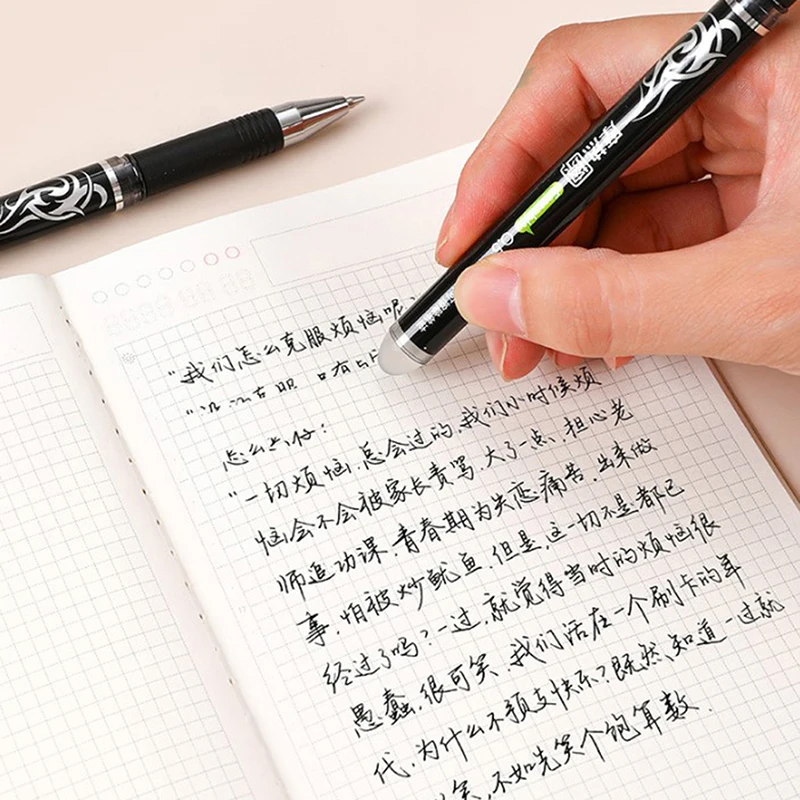 "我们怎么克服烦恼呢
怎么
"一切烦恼,总会过的,我们小时候烦
恼会不会被家长责骂,大了一点,担心老
师追功课,青春期为失恋痛苦,出来做
事,怕被炒鱿鱼.但是,这一切不是都已
经过了吗?一过,就觉得当时的烦恼很
愚蠢,很可笑.我们活在一个刷卡的年
代,为什么不预支快乐?既然知道一过就
笑,不如先笑个饱算数.